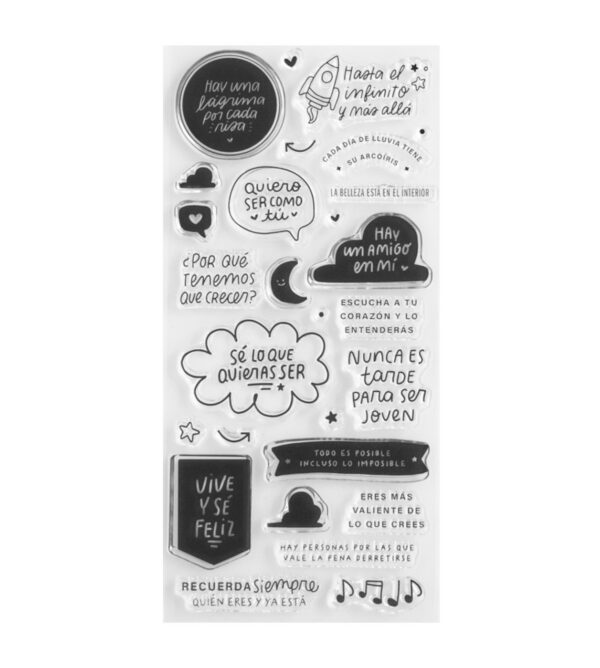 Hay una
lágrima
por cada
risa
Hasta el
infinito
y más allá
CADA DÍA DE LLUVIA TIENE
SU ARCOÍRIS
LA BELLEZA ESTÁ EN EL INTERIOR
QUIERO
SER COMO
tú
HAY
UN AMIGO
EN MÍ
¿POR QUÉ
TENEMOS
QUE CRECER?
ESCUCHA A TU
CORAZÓN Y LO
ENTENDERÁS
SÉ LO QUE
QUIERAS SER
NUNCA ES
tARDE
PARA SER
JOVEN
TODO ES POSIBLE
INCLUSO LO IMPOSIBLE
VIVE
Y SÉ
FELIZ
ERES MÁS
VALIENTE DE
LO QUE CREES
HAY PERSONAS POR LAS QUE
VALE LA PENA DERRETIRSE
RECUERDA siempre
QUIÉN ERES Y YA ESTÁ